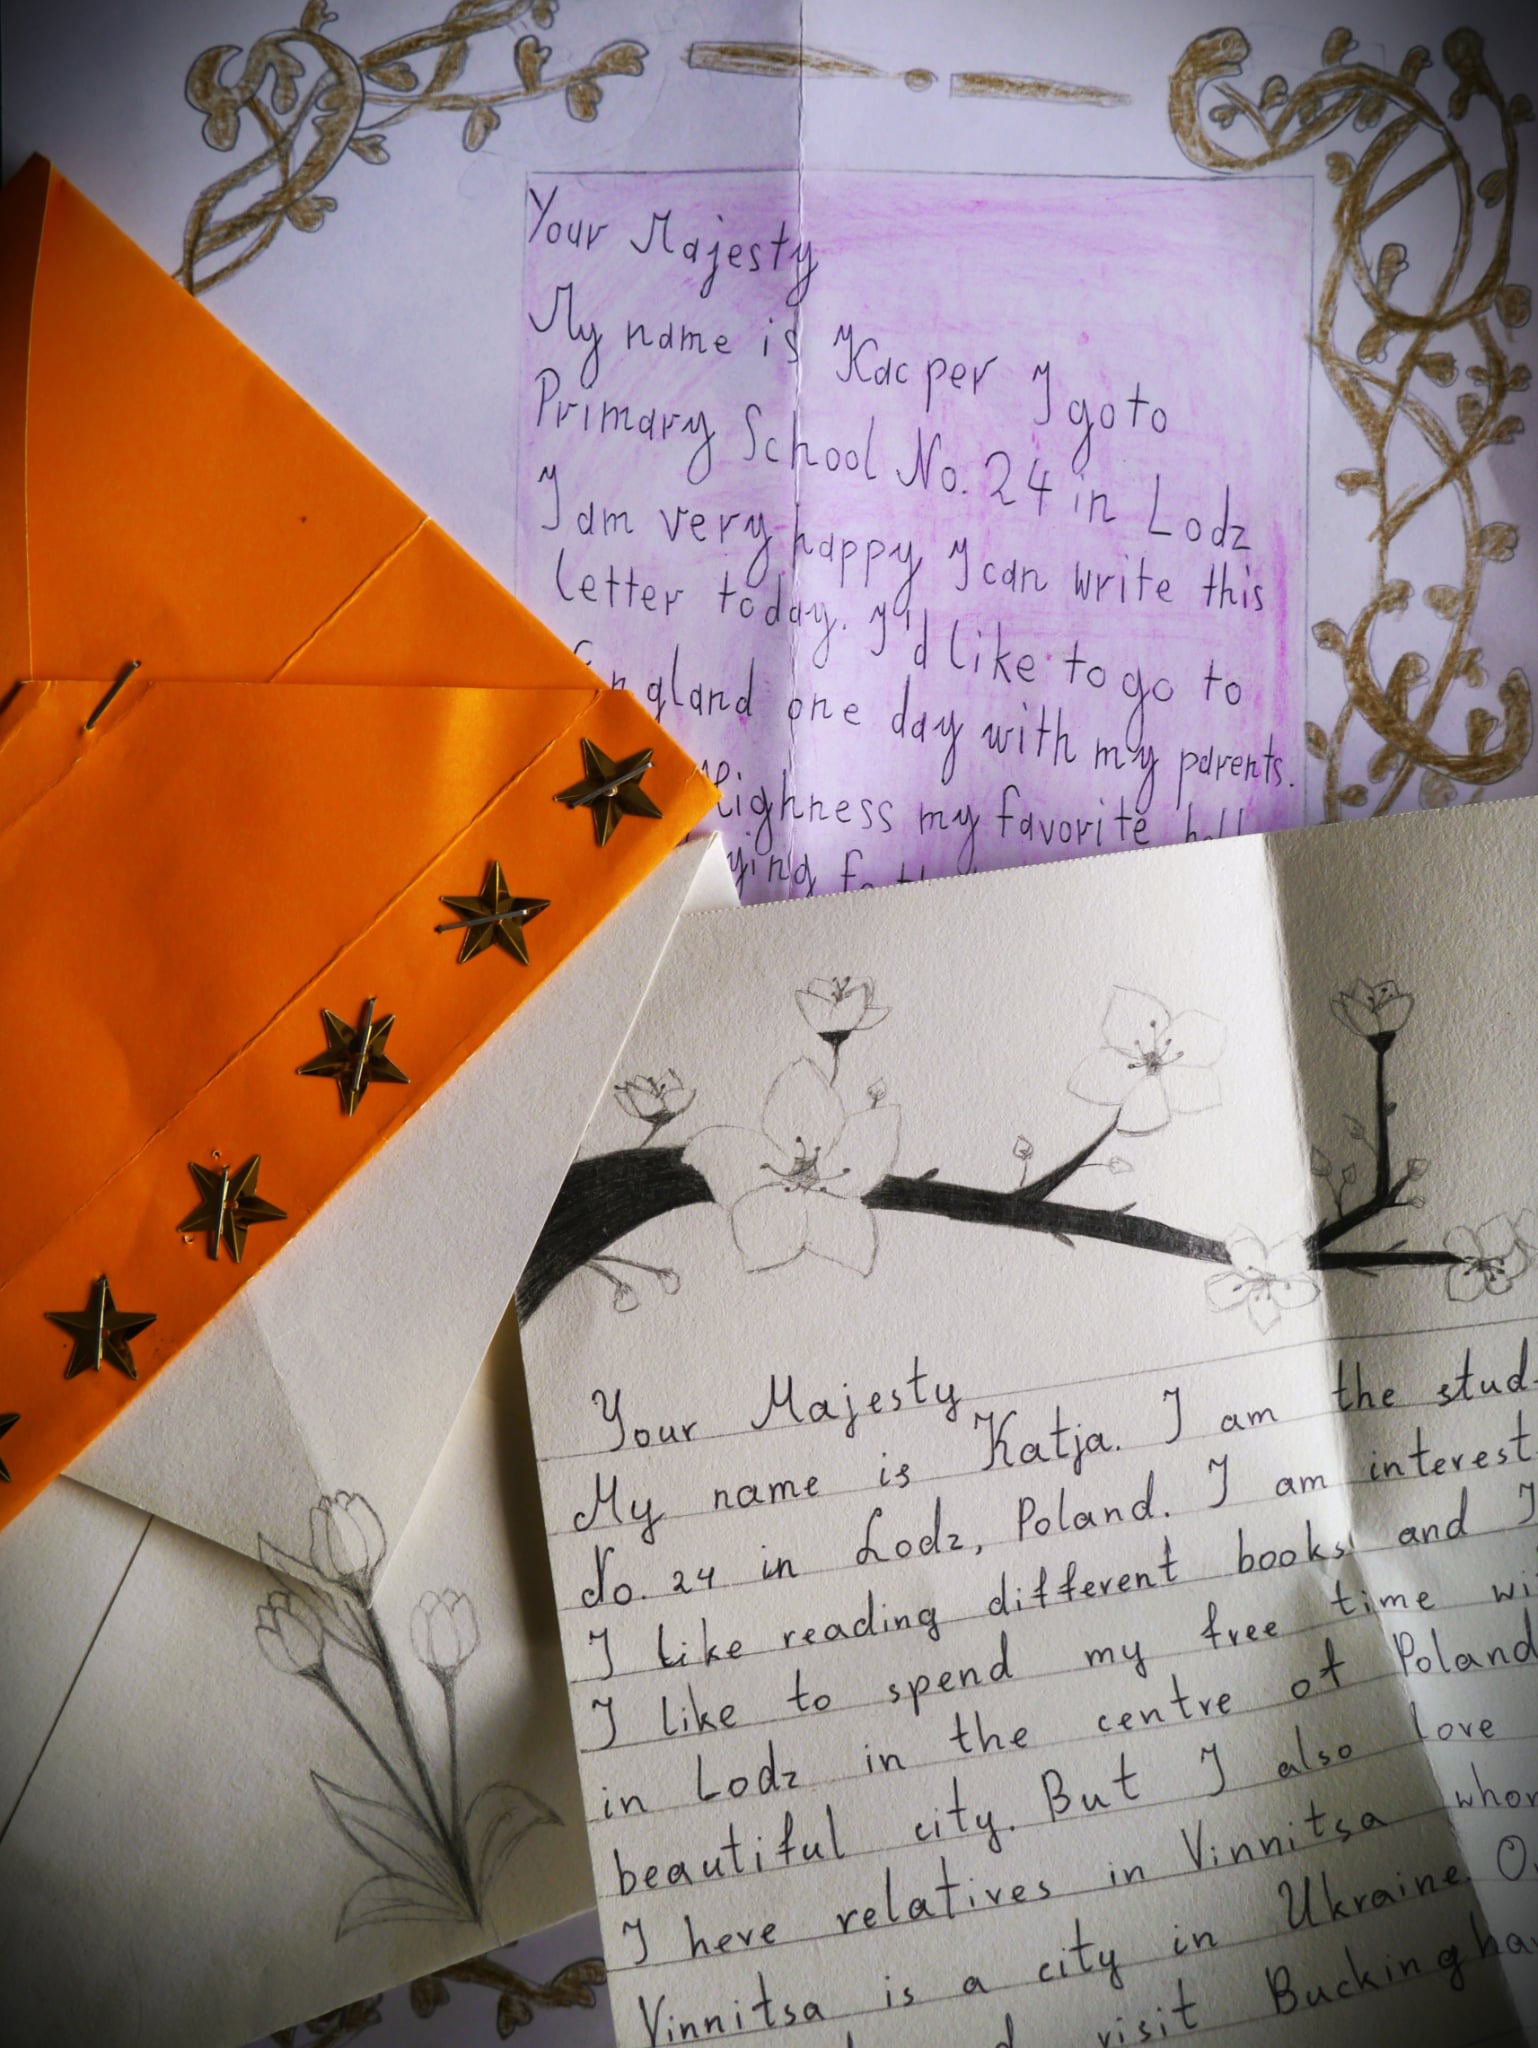 Your Majesty
My name is Kacper I go to
Primary School No. 24 in Lodz
I am very happy I can write this
letter today. I'd like to go to
England one day with my parents.
Highness my favorite
Your Majesty
My name is Katja. I am the stud
No. 24 in Lodz, Poland. I am interest
I like reading different books and I
I like to spend my free time wi
in Lodz in the centre of Poland
beautiful city. But I also love
I here relatives in Vinnitsa whom
Vinnitsa is a city in Ukraine. O
visit Buckingha